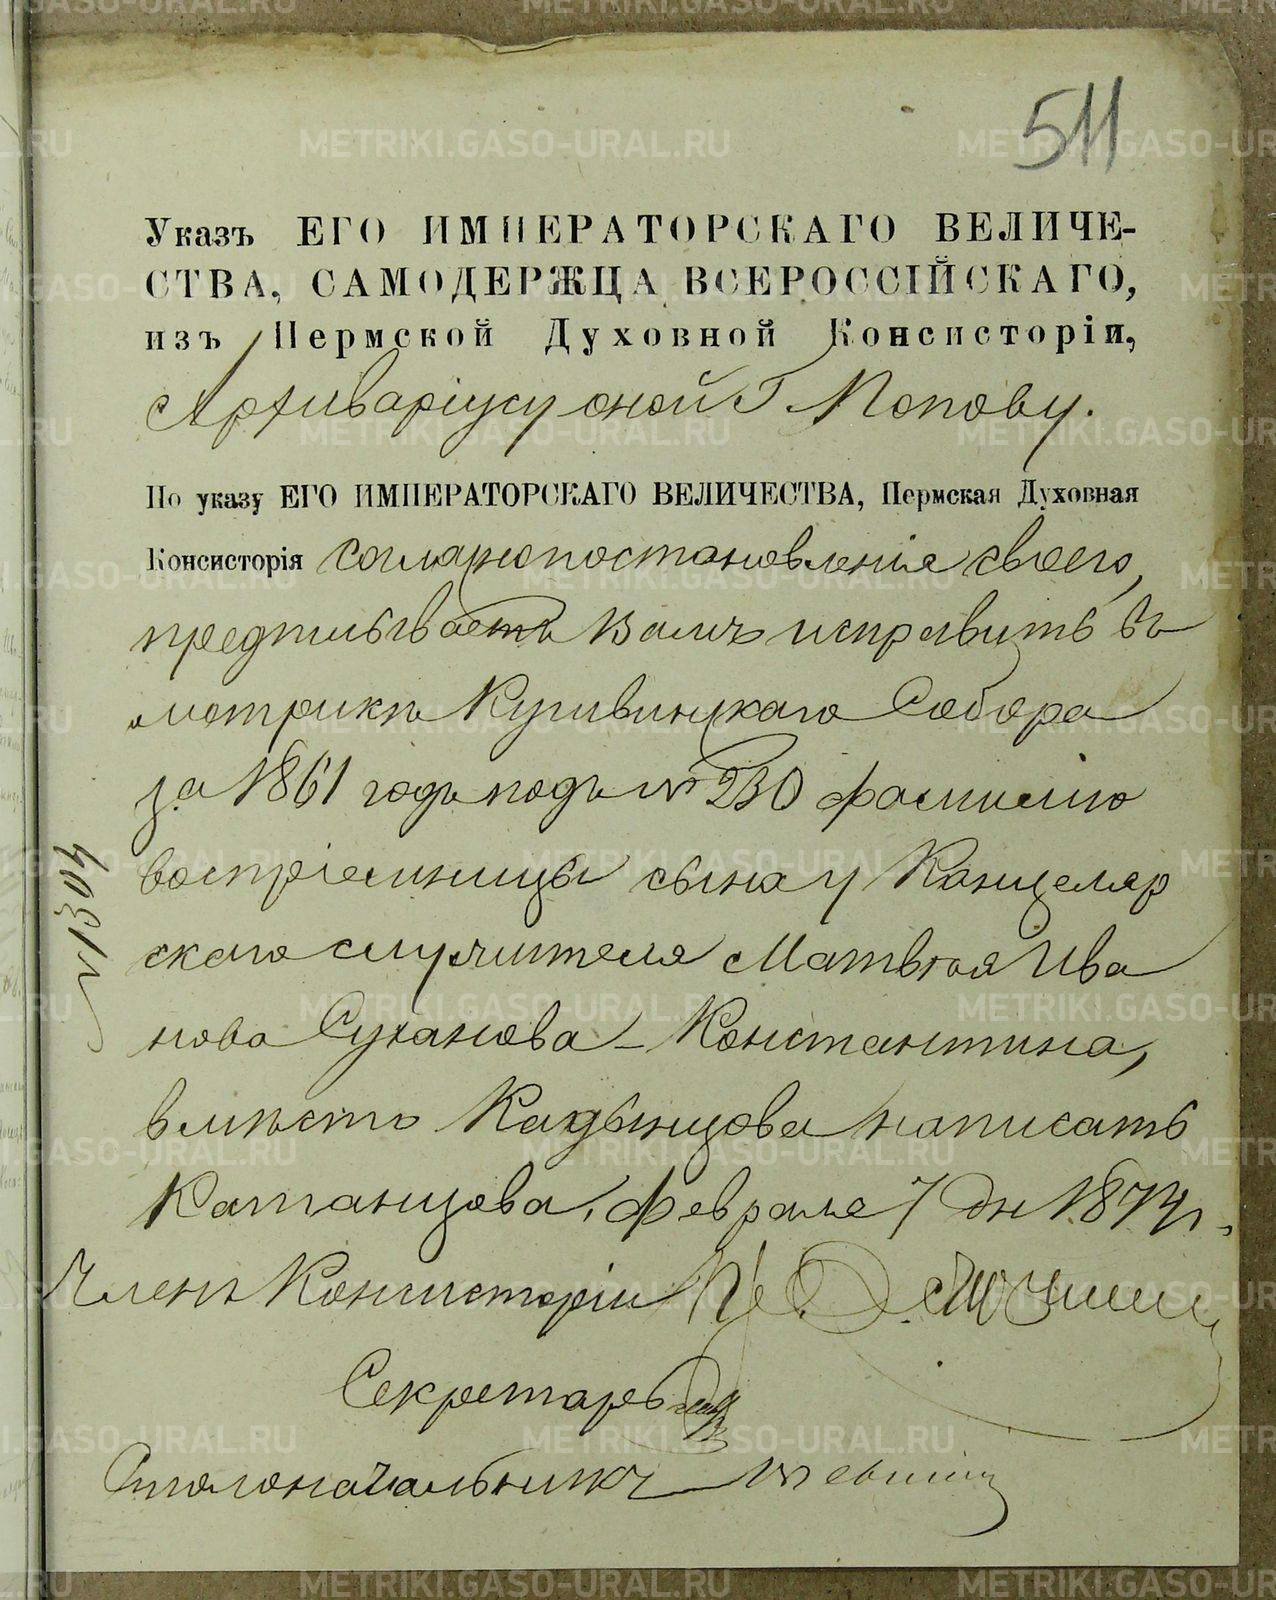 511
Указъ ЕГО ИМПЕРАТОРСКАГО ВЕЛИЧЕ-
СТВА, САМОДЕРЖЦА ВСЕРОССІЙСКАГО,
изъ Пермской Духовной Консисторіи,
Архиваріусу оной Г Попову.
По указу ЕГО ИМПЕРАТОРСКАГО ВЕЛИЧЕСТВА, Пермская Духовная
Консисторія согласно постановленія своего,
предписываетъ Вамъ исправить въ
метрикѣ Кушвинскаго Собора
за 1861 годъ подъ № 230 фамилію
воспріемницы сына у Канцеляр
скаго служителя Матвѣя Ива
нова Суханова - Константина,
вмѣсто Кадынцова написать
Катанцова. Февраля 7 дн 1874 г.
№ 1304
Членъ Консисторіи
Секретарь
Столоначальникъ
METRIKI.GASO-URAL.RU